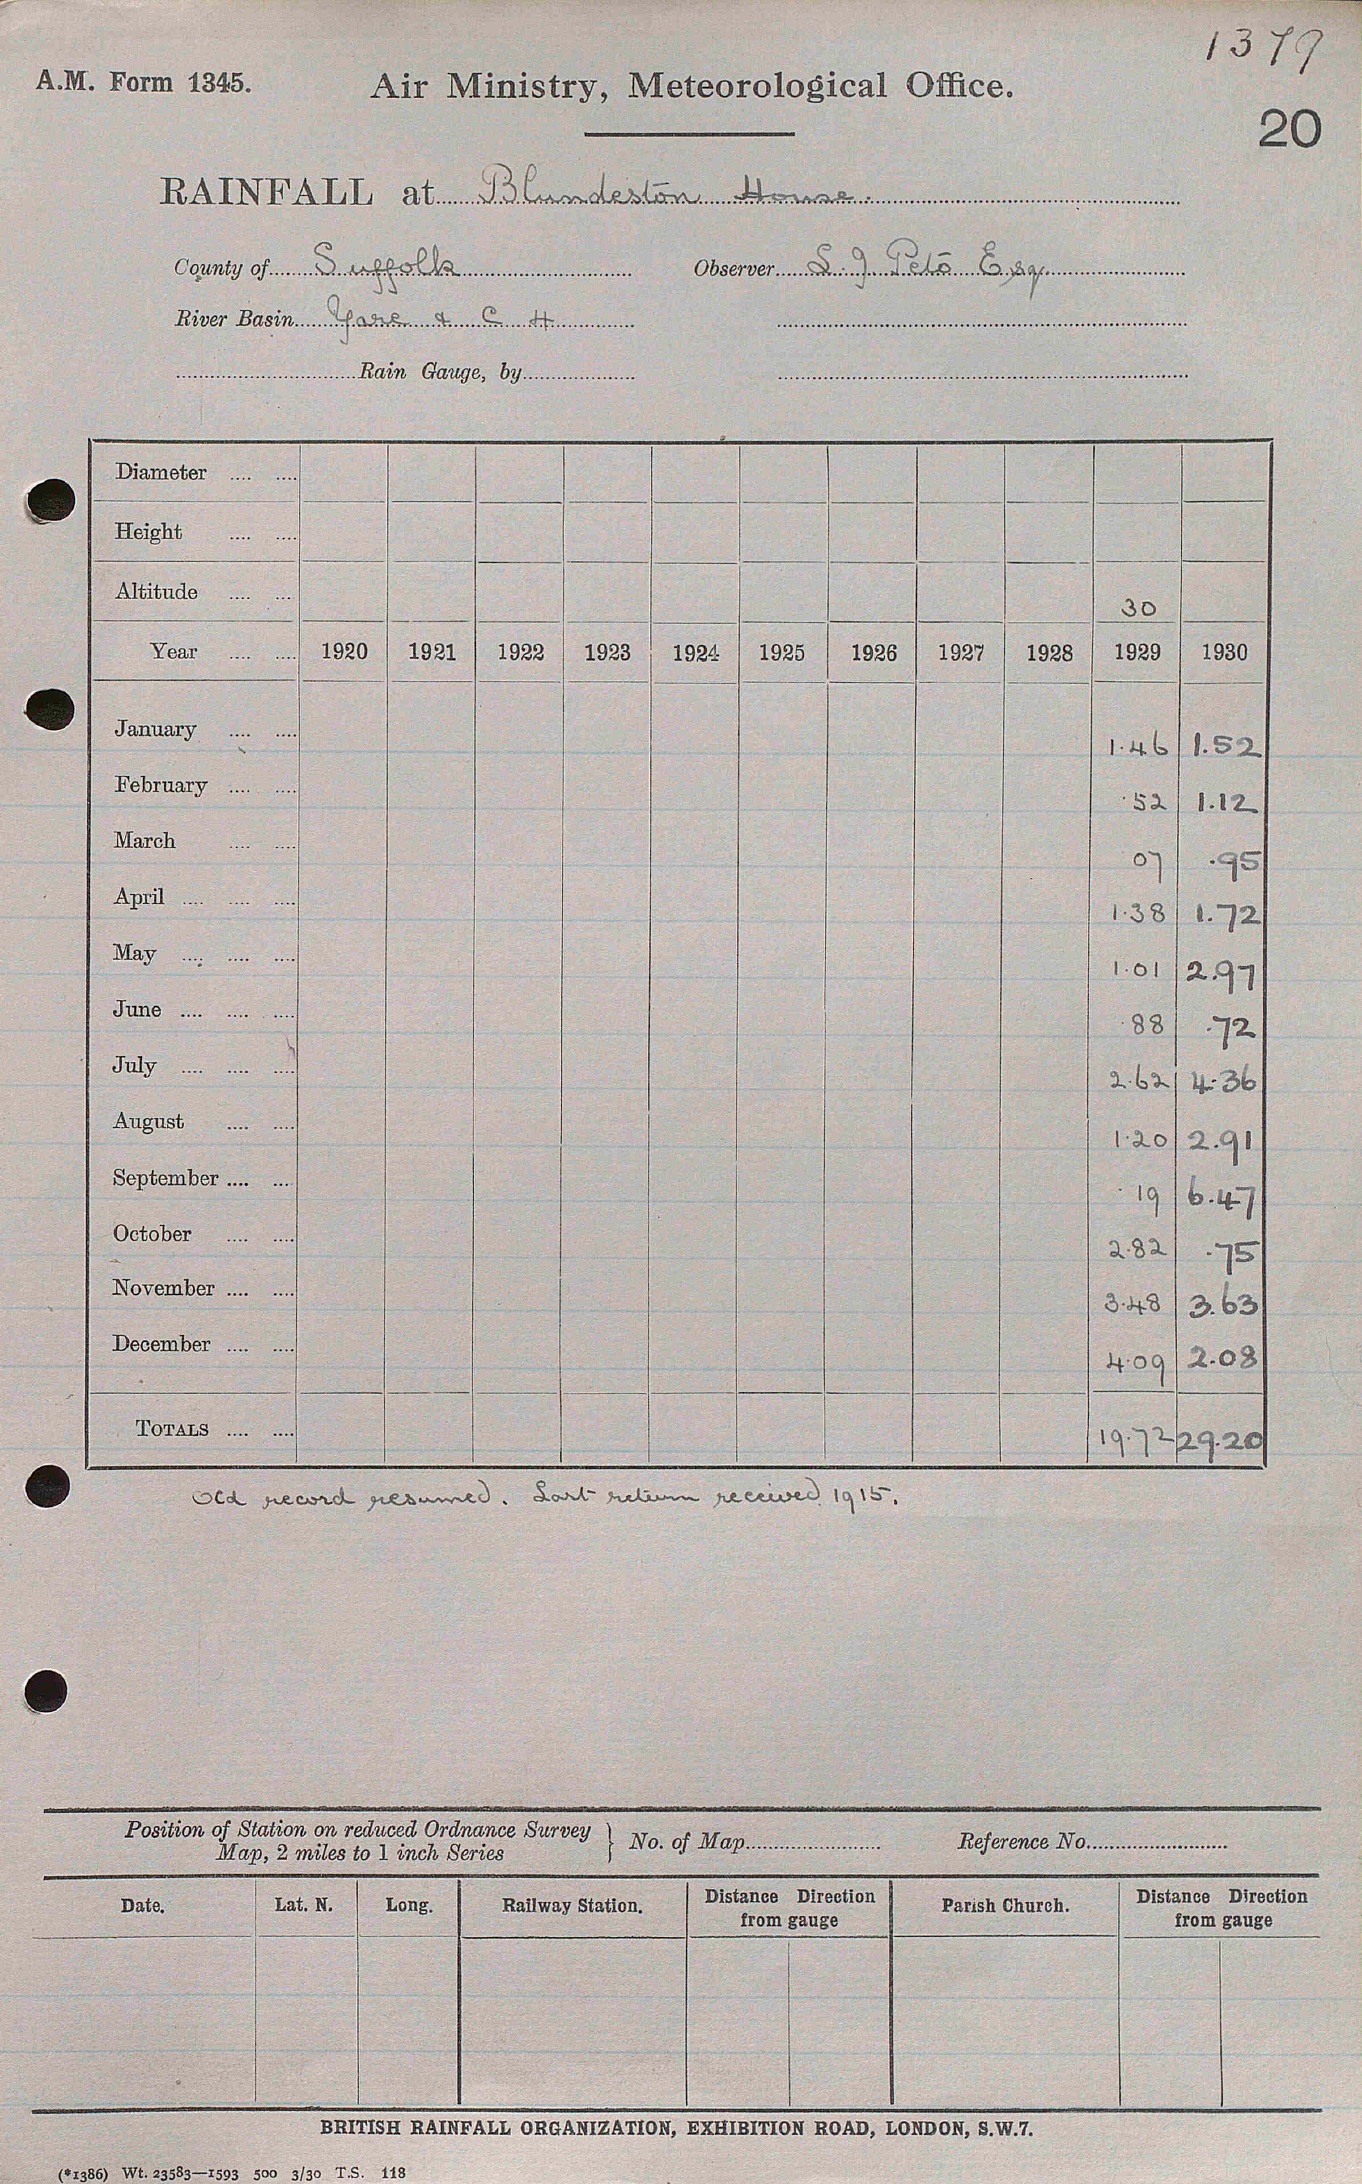 1379
A.M. Form 1345. Air Ministry, Meteorological Office.
20
RAINFALL at Blundeston House.
County of Suffolk Observer S. J. Peto Esq.
River Basin Yare & C H
Rain Gauge, by
Diameter
Height
Altitude 30
Year 1920 1921 1922 1923 1924 1925 1926 1927 1928 1929 1930
January 1.46 1.52
February .52 1.12
March 07 .95
April 1.38 1.72
May 1.01 2.97
June .88 .72
July 2.62 4.36
August 1.20 2.91
September .19 6.47
October 2.82 .75
November 3.48 3.63
December 4.09 2.08
TOTALS 19.72 29.20
Old record resumed. Last return received 1915.
Position of Station on reduced Ordnance Survey
Map, 2 miles to 1 inch Series } No. of Map Reference No.
Date. Lat. N. Long. Railway Station. Distance Direction from gauge Parish Church. Distance Direction from gauge
BRITISH RAINFALL ORGANIZATION, EXHIBITION ROAD, LONDON, S.W.7.
(*1386) Wt. 23583—1593 500 3/30 T.S. 118